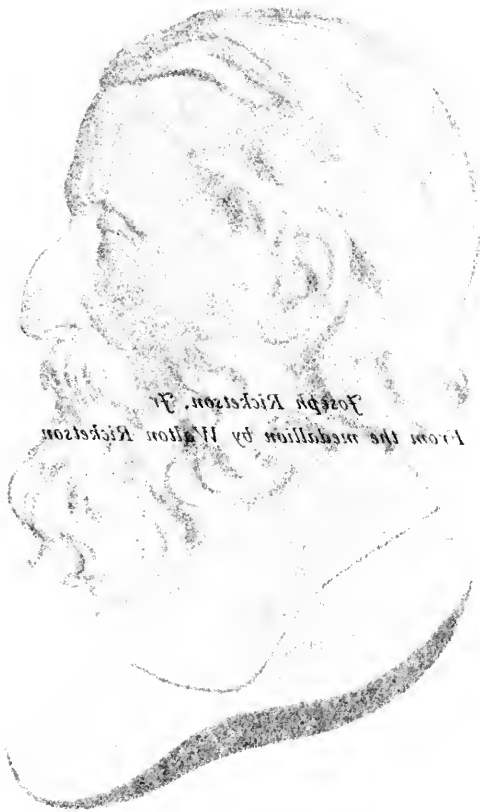 Joseph Ricketson, Jr.
From the medallion by Walton Ricketson